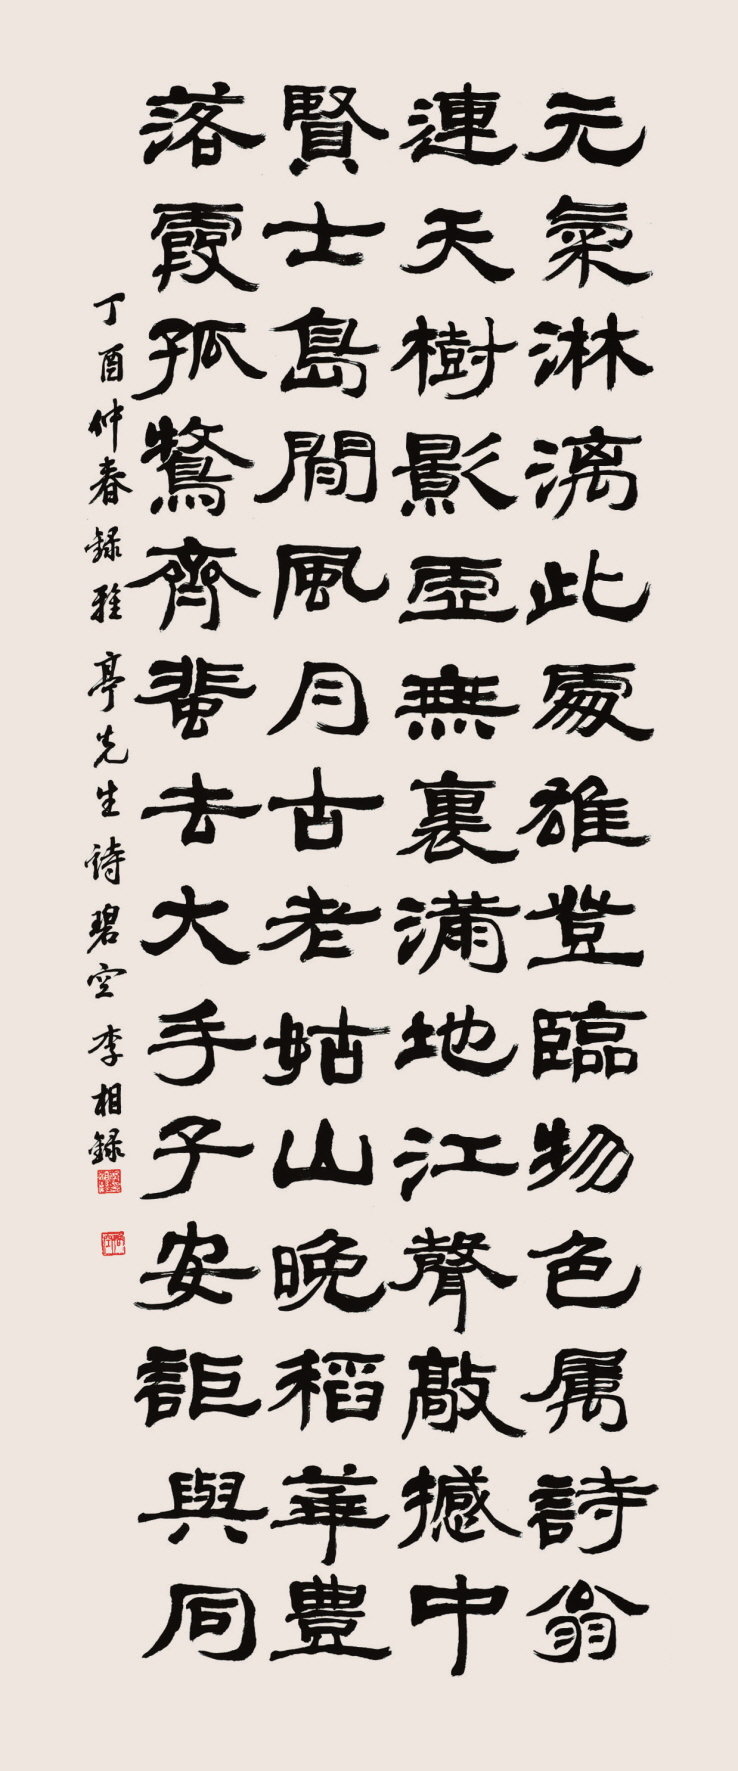 元氣淋漓此處雄登臨物色属詩翁
連天樹影虛無裏滿地江聲敲撼中
賢士島間風月古老姑山晚稻華豊
落霞孤鶩齊蜚去大手子安詎與同
丁酉仲春録雅亭先生詩碧空李相録